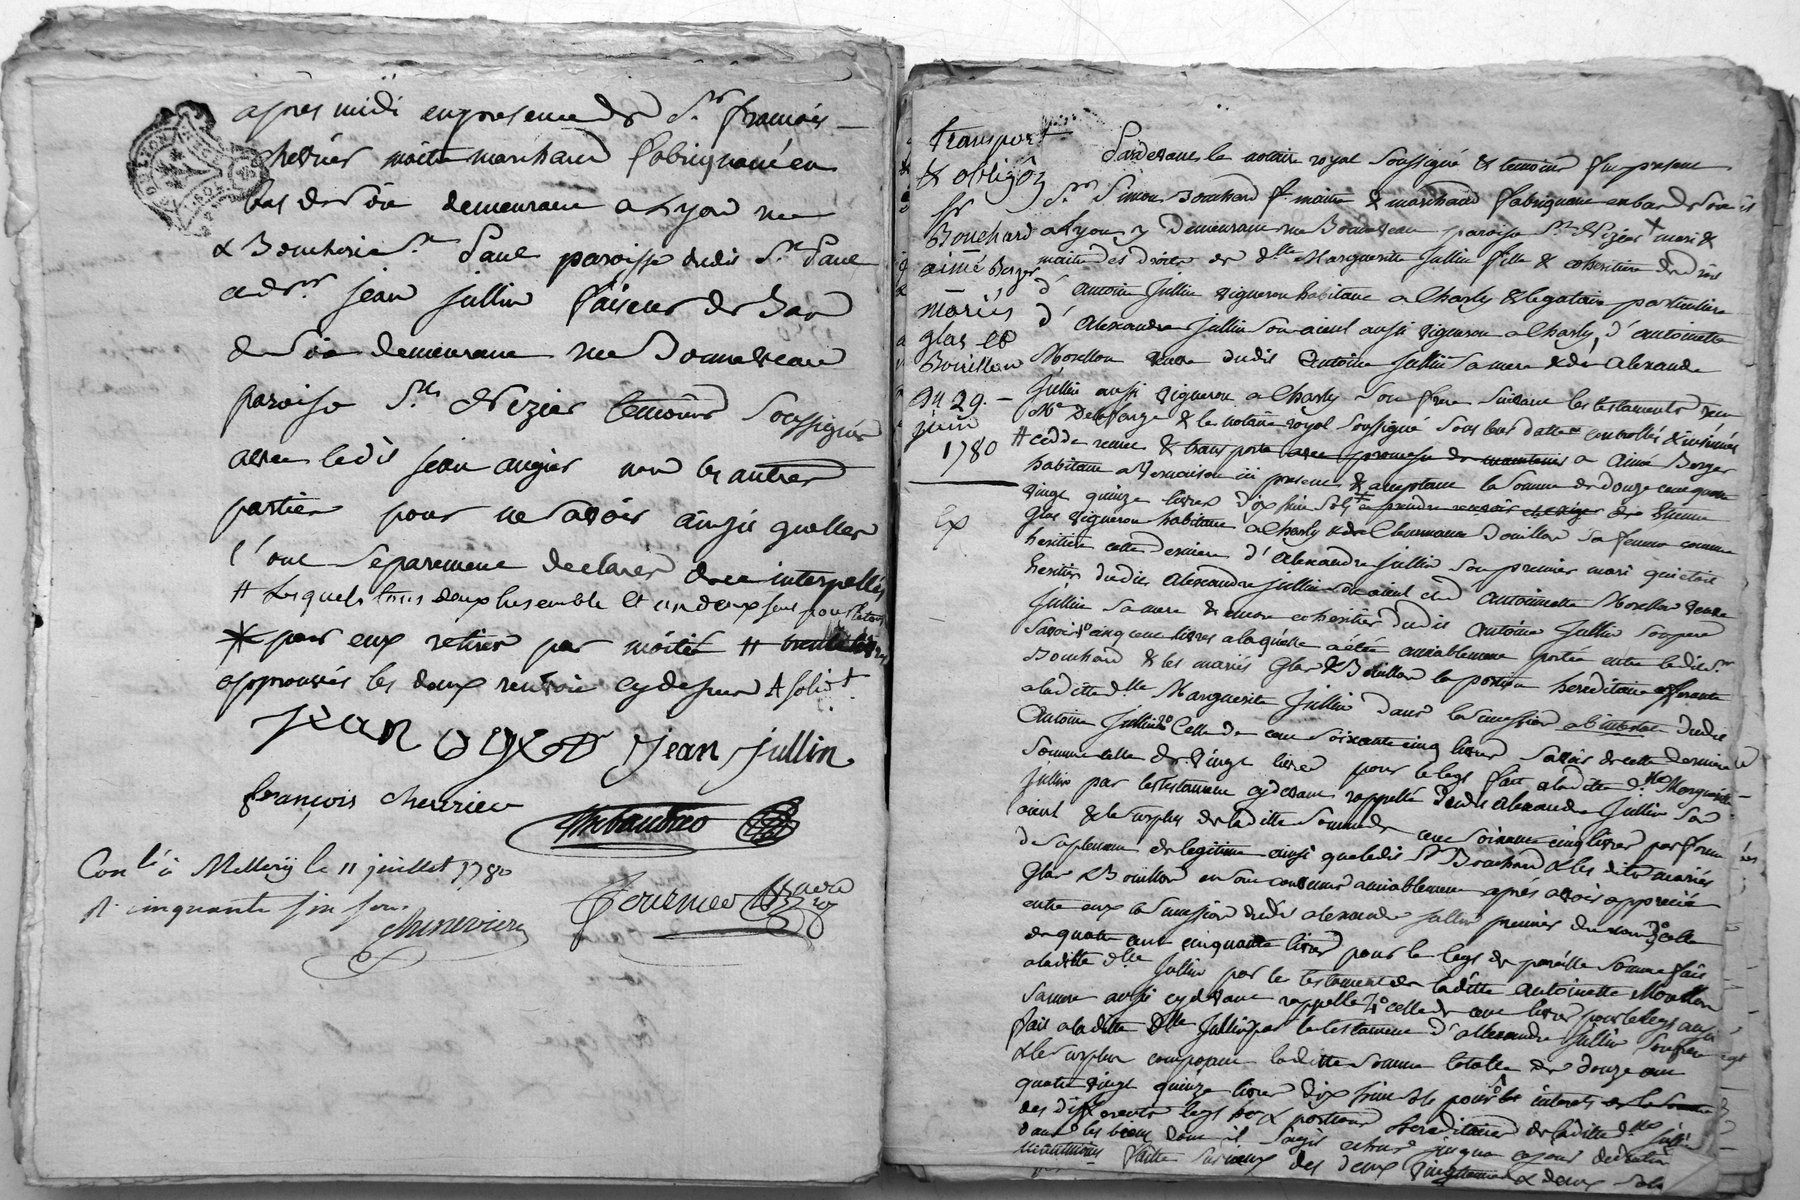 après midi en presence de Sr françois
chevrier maitre marchand fabriquant en
bas de soie demeurant a Lyon rue
& Boucherie St Paul paroisse dudit St Paul
et de Sr jean jullin faiseur de bas
de soie demeurant rue Bonneveau
paroisse St Nizier temoins soussignés
avec ledit jean augier non les autres
parties pour ne savoir ainsi quelles
l'ont separement declarés de ce interpellés
# lesquels tous deux ensemble et un deux seul pour
* pour eux retirer par moitié #
approuvés les deux renvois cy dessus
jean ogier jean jullin
françois chevrier
thibaudier
Conlé à Millery le 11 juillet 1780
R. cinquante six sous
chenevier
transport
& obligõn
Sr
Bouchard
aimé Berger
mariés
glas et
Bouillon
Du 29.
juin
1780
Ex
Pardevant le notaire royal soussigné & temoins fut present
Sr Simon Bouchard maitre & marchand fabriquant en bas de soie
a Lyon y demeurant rue Bonneveau paroisse St Nizier mari &
maitre des droits de dlle Marguerite Jullin fille & coheritiere de droit
d'antoine Jullin vigneron habitant a Charly & legataire particuliere
d'alexandre jullin son aieul aussi vigneron a Charly, d'antoinette
Morellon veuve dudit antoine Jullin sa mere & de alexandre
Jullin aussi vigneron a Charly son frere suivant les testaments reçu
Me Delaforge & le notaire royal soussigné sous leurs dattes controllés & insinués
# cedde remet & transporte avec promesse de maintenir a aimé Berger
habitant a Vernaison ici present & acceptant la somme de douze cent quatre
vingt quinze livres dix huit sols a prendre des Etienne
Glas vigneron habitant a Charly & de Bouillon sa femme comme
heritiere cette derniere d'alexandre jullin son premier mari qui etoit
heritier dudit alexandre jullin son aieul et d'antoinette Morellon veuve
Jullin sa mere & encore coheritier dudit antoine Jullin son pere
Savoir 1o cinq cent livres a laquelle a été amiablement portée entre ledit Sr
Bouchard & les mariés Glas & Bouillon la portion hereditaire afferante
a ladite dlle Marguerite Jullin dans la succession abintestat dudit
antoine Jullin 2o Celle de cent soixante cinq livres savoir de cette derniere
somme celle de vingt livres pour le legs fait a ladite dlle Marguerite
jullin par le testament cy devant rappellé dudit alexandre Jullin son
aieul & le surplus de ladite somme de cent soixante cinq livres par forme
de suplement de legitime ainsi que ledit Sr Bouchard & lesdits mariés
Glas & Bouillon en sont convenus amiablement après avoir apprecié
entre eux la succession dudit alexandre jullin premier du nom 3o celle
de quatre cent cinquante livres pour le legs de pareille somme fait
a ladite dlle Jullin par le testament de ladite antoinette Morellon
sa mere aussi cy devant rappellé 4o celle de cent livres pour le legs aussi
fait a ladite dlle Jullin par le testament d'allexandre Jullin son frere
& le surplus composant ladite somme totalle de douze cent
quatre vingt quinze livres dix huit sols pour les interets de la somme
des differents legs & portions hereditaires de ladite dlle jullin
dans les biens dont il s'agit echus jusqu'a ce jour deduction
faitte sur iceux des deux vingtiemes & deux sols